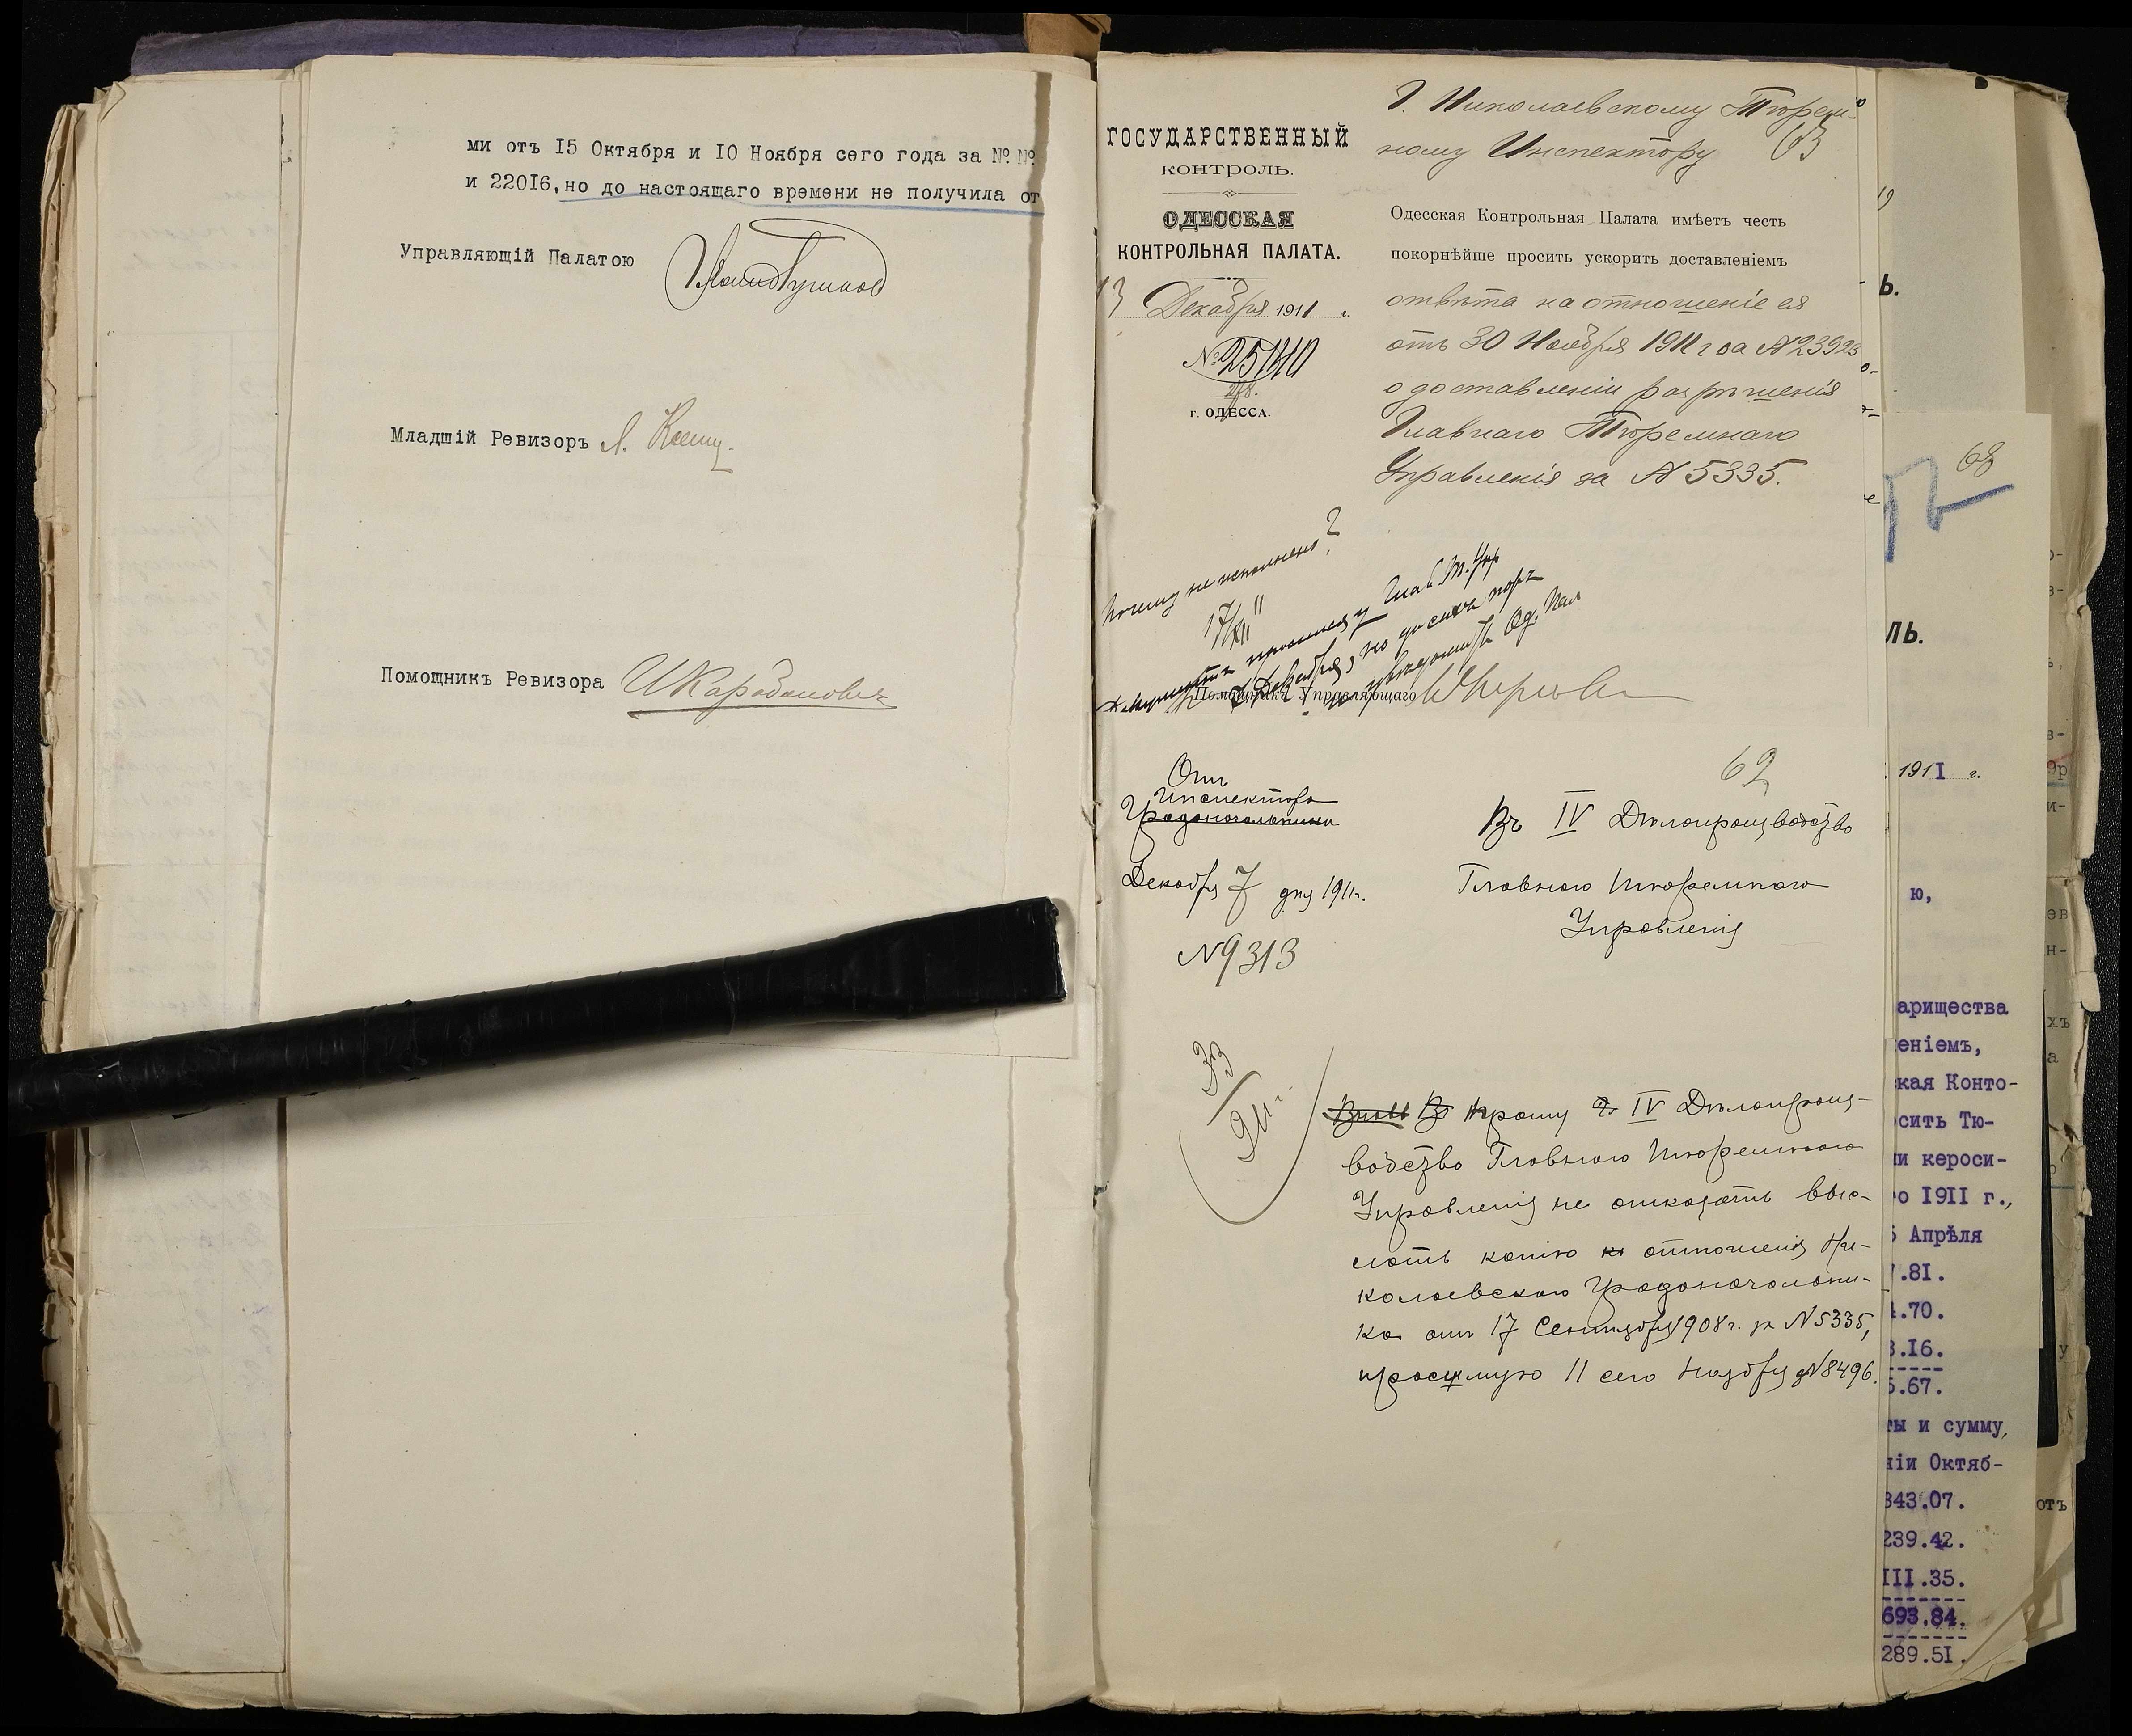 ми отъ I5 Октября и I0 Ноября сего года за №№
и 220I6, но до настоящаго времени не получила от
Управляющій Палатою
Младшій Ревизоръ
Помощникъ Ревизора
Г. Николаевскому Тюрем-
ному Инспектору
63
ГОСУДАРСТВЕННЫЙ
КОНТРОЛЬ.
ОДЕССКАЯ
КОНТРОЛЬНАЯ ПАЛАТА.
13 Декабря 1911 г.
№ 25140
г. ОДЕССА.
Одесская Контрольная Палата имѣетъ честь
покорнѣйше просить ускорить доставленіемъ
отвѣта на отношеніе ея
отъ 30 Ноября 1911 г за № 23923
о доставленіи разрѣшенія
Главнаго Тюремнаго
Управленія за № 5335.
Почему не исполнено?
17/XII 11
Глав. Т. Упр
Декабря, но до сихъ поръ
Од. Пал
Помощникъ Управляющаго
62
Отъ
Инспектора
Градоначальника
Декабря 7 дня 1911 г.
№ 9313
Въ IV Дѣлопроизводство
Главнаго Тюремнаго
Управленія
33
911 г.
Прошу IV Дѣлопроиз-
водство Главнаго Тюремнаго
Управленія не отказать выс-
лать копію отношенія Ни-
колаевскаго Градоначальни-
ка отъ 17 Сентября 1908 г. за № 5335,
просимую 11 сего Ноября № 8496.
68
Ь.
ЛЬ.
1911 г.
ю,
арищества
еніемъ,
кая Конто-
сить Тю-
и кероси-
о I9II г.,
Апрѣля
.8I.
.70.
.I6.
.67.
ты и сумму,
ніи Октяб-
343.07.
239.42.
III.35.
693.84.
289.5I.
отъ